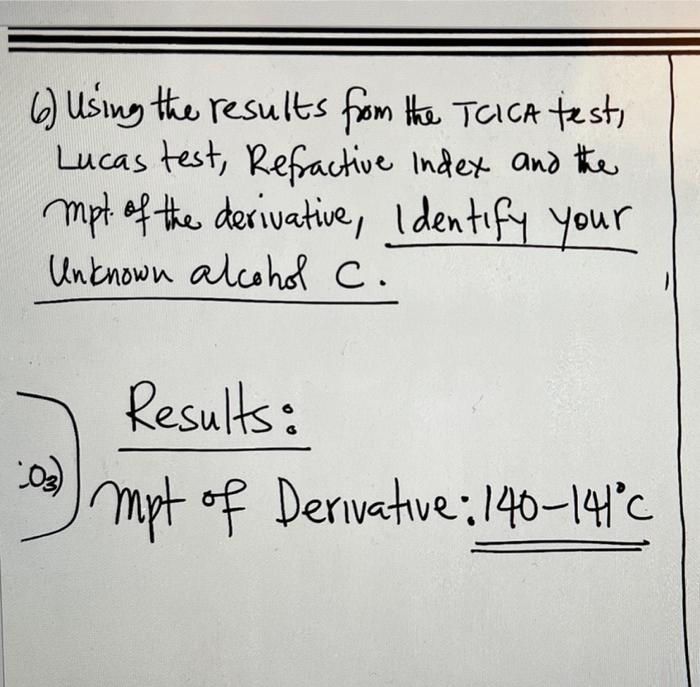 6) Using the results from the TCICA test,
Lucas test, Refractive Index and the
mpt. of the derivative, Identify your
Unknown alcohol C.
Results:
:O3)
mpt of Derivative: 140-141°C